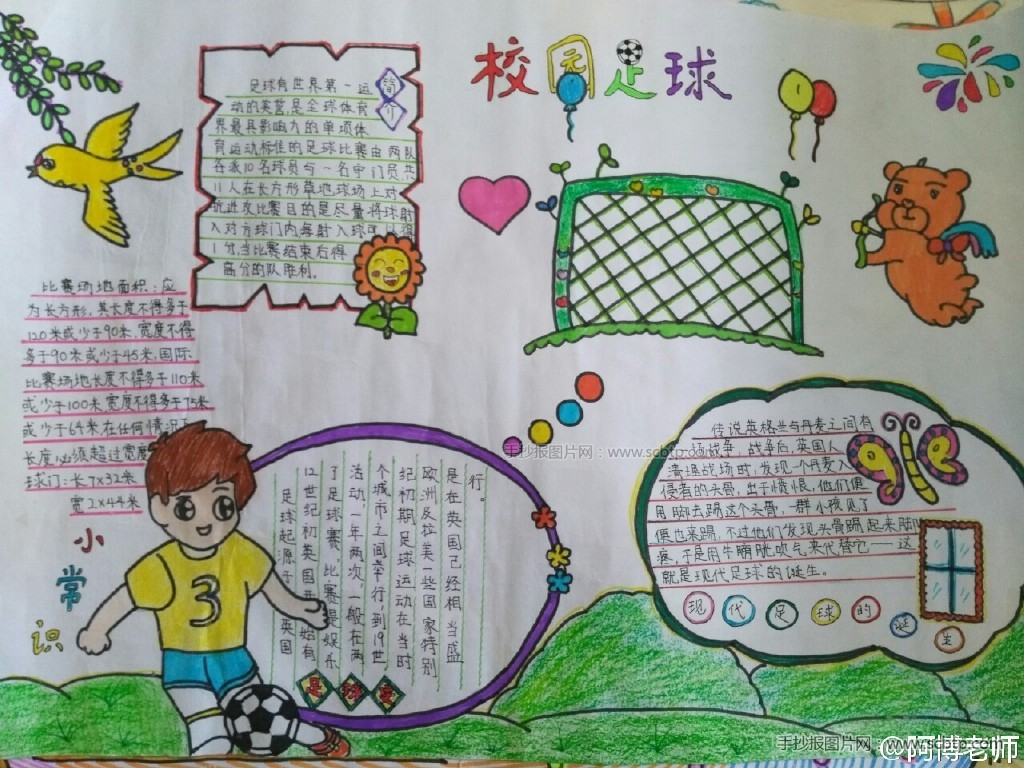 校园足球
简介
足球有世界第一运
动的美誉,是全球体育
界最具影响力的单项体
育运动标准的足球比赛由两队
各派10名球员与一名守门员共
11人在长方形草地球场上对
抗进攻比赛目的是尽量将球射
入对方球门内每射入球可以得
1分,当比赛结束后得
高分的队胜利。
比赛场地面积:应
为长方形,其长度不得多于
120米或少于90米,宽度不得
多于90米或少于45米,国际
比赛场地长度不得多于110米
或少于100米宽度不得多于75米
或少于64米在任何情况下
长度必须超过宽度
球门:长7×32米
宽2×44米
小常识
3
足球起源于英国
12世纪初英国开始有
了足球赛。比赛是娱乐
活动一年两次,一般在两
个城市之间举行,到19世
纪初期足球运动在当时
欧洲及拉美一些国家特别
是在英国已经相当盛
行。
传说英格兰与丹麦之间有
战争,战争后,英国人
清理战场时,发现一个丹麦入
侵者的头骨,出于愤恨,他们便
用脚去踢这个头骨,一群小孩见了
便也来踢,不过他们发现头骨踢起来脚
疼,于是用牛膀胱吹气来代替它——这
就是现代足球的诞生。
现代足球的诞生
手抄报图片网:www.scbtp.com
手抄报图片网:www.scbtp.com
@阿博老师